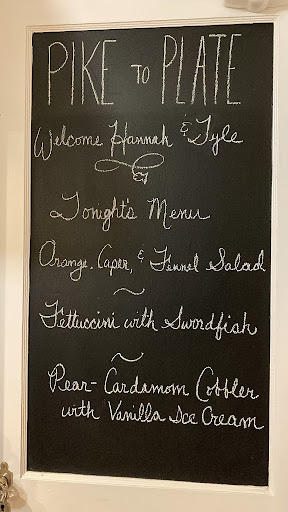 PIKE TO PLATE
Welcome Hannah & Tyle
Tonight's Menu
Orange, Caper, & Fennel Salad
Fettuccini with Swordfish
Pear-Cardamom Cobbler
with Vanilla Ice Cream